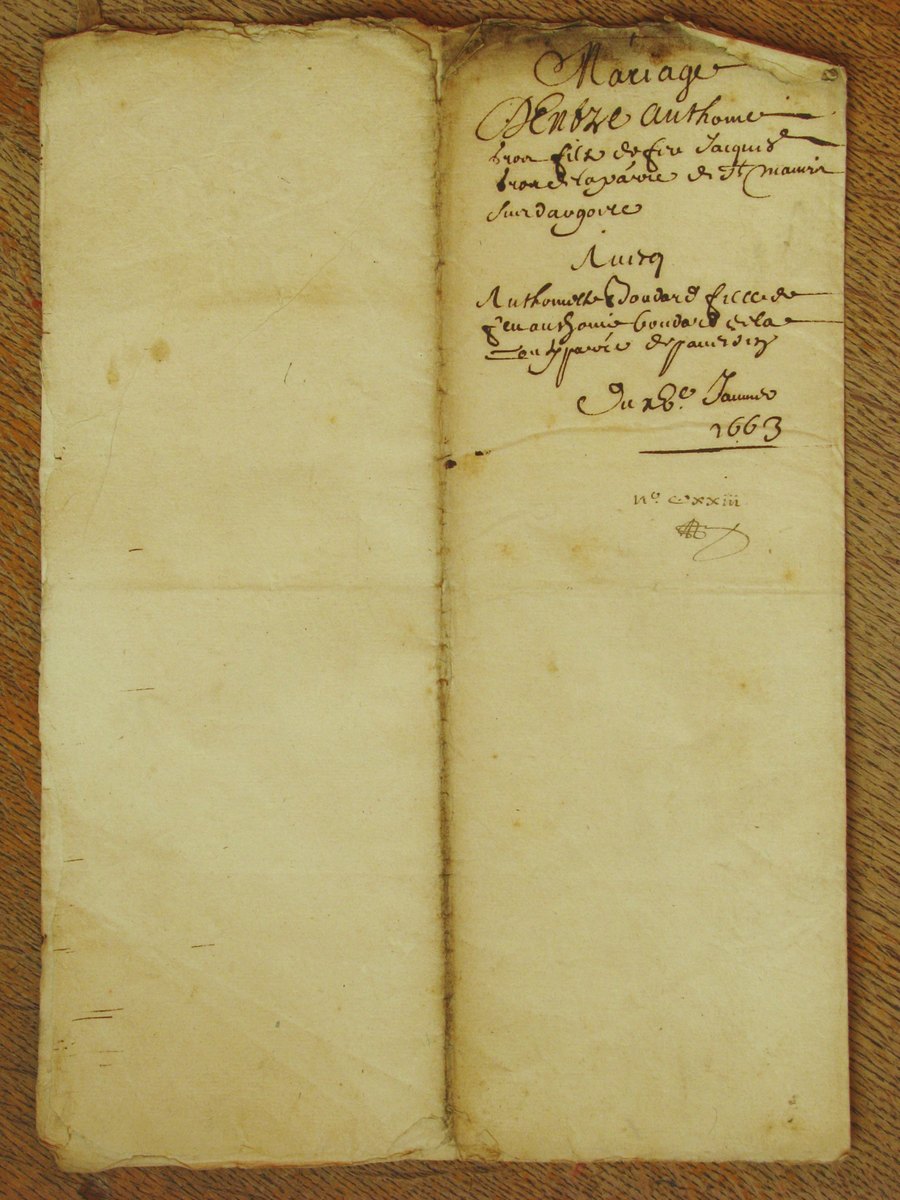 Mariage
D'Entre Anthoine
filz de feu Jacques
de la parrie de St Mauris
sur dargoire
Avecq
Anthoinette Boudard fille de
feu anthoine boudard de la
parrie de
Du Janvier
1663
n° cxxiii